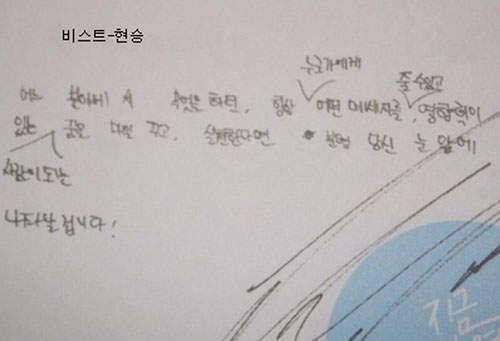 비스트-현승
누군가에게
줄 수있고
어느 무엇을 하던, 항상 어떤 메세지를, 영향력이
있는 꿈을 꾸고, 실현한다면 분명 당신 눈 앞에
나타날 겁니다!
지금